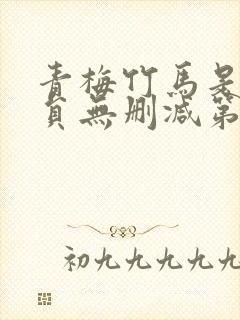 青梅竹馬是
頁無刪減第
初九九九九九